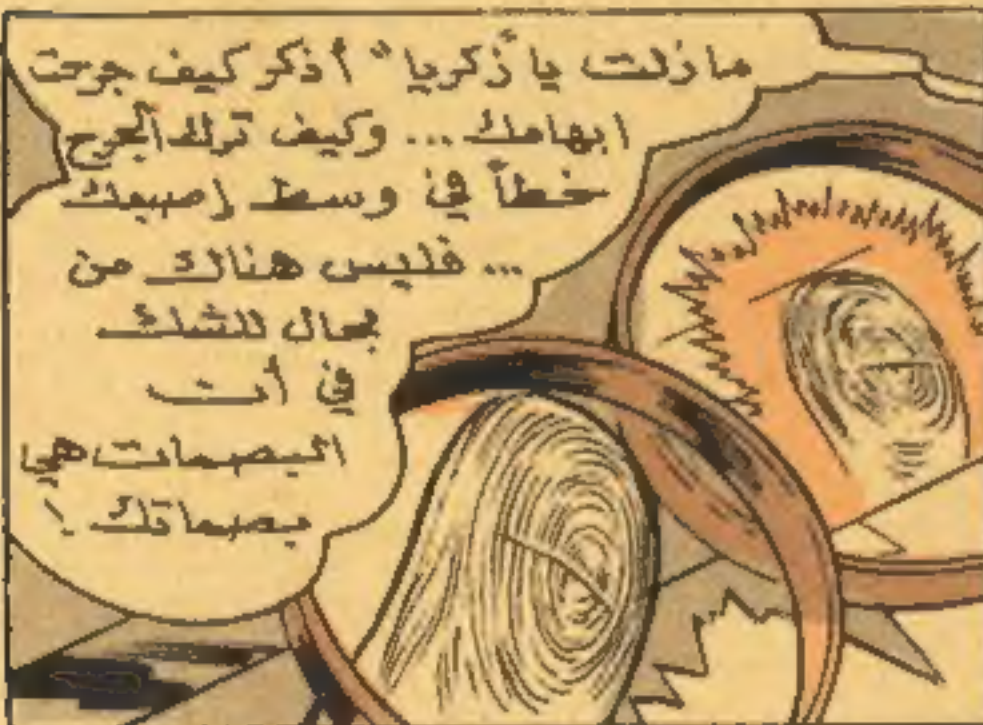 مازلت يا "زكريا" أذكر كيف جرحت
ابهامك ... وكيف ترك الجرح
خطاً في وسط إصبعك
... فليس هناك من
مجال للشك
في أن
البصمات هي
بصماتك !